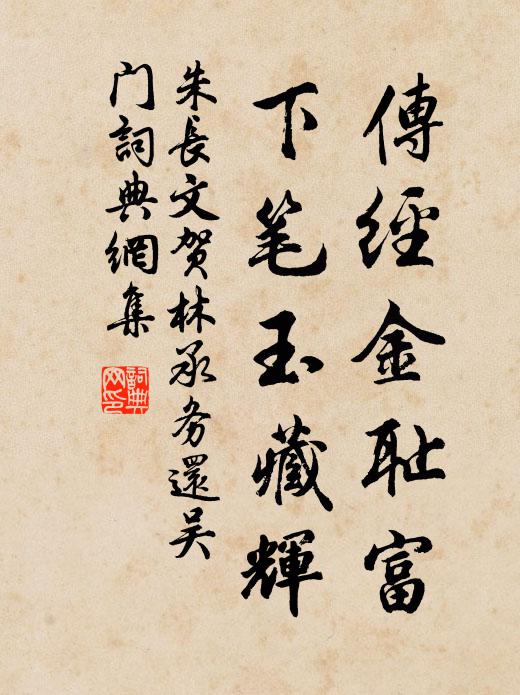 傳經金耻富
下笔玉藏輝
朱長文贺林承务還吴
门詞典網集
詞典網印